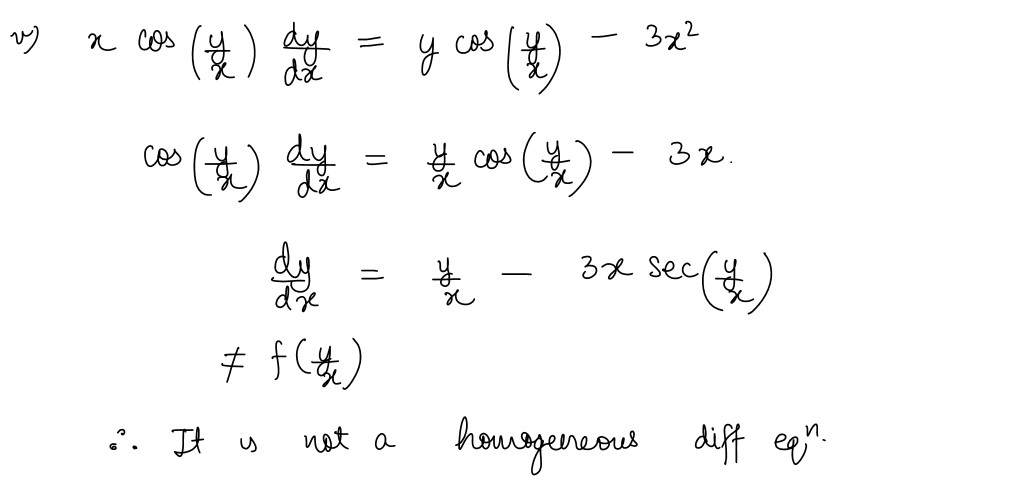 v) x cos(y/x) dy/dx = y cos(y/x) - 3x²
cos(y/x) dy/dx = y/x cos(y/x) - 3x.
dy/dx = y/x - 3x sec(y/x)
≠ f(y/x)
∴ It is not a homogeneous diff eqⁿ.